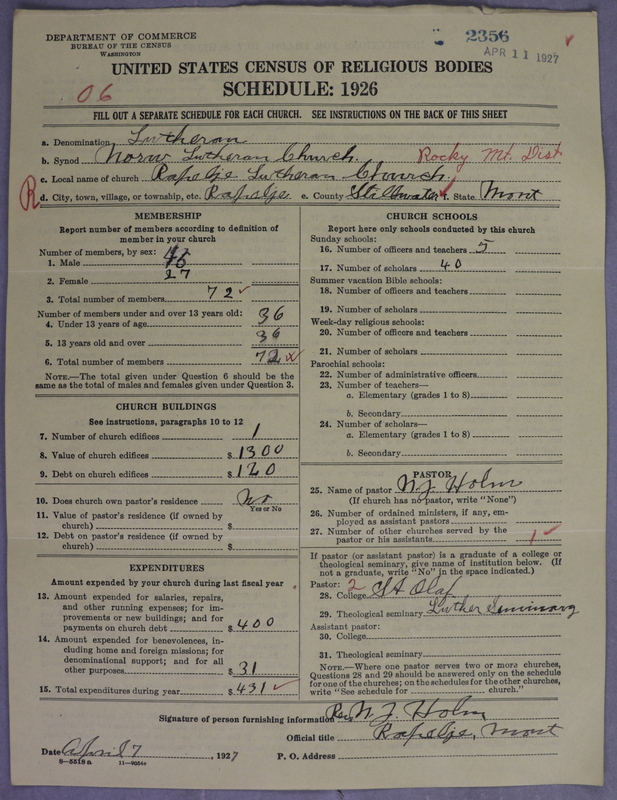 DEPARTMENT OF COMMERCE
BUREAU OF THE CENSUS
WASHINGTON
2356
APR 11 1927
UNITED STATES CENSUS OF RELIGIOUS BODIES
SCHEDULE: 1926
06
FILL OUT A SEPARATE SCHEDULE FOR EACH CHURCH. SEE INSTRUCTIONS ON THE BACK OF THIS SHEET
a. Denomination Lutheran
b. Synod Norw Lutheran Church. Rocky Mt. Dist
c. Local name of church Rapelje Lutheran Church.
R
d. City, town, village, or township, etc. Rapelje e. County Stillwater f. State Mont
MEMBERSHIP
Report number of members according to definition of
member in your church
Number of members, by sex:
1. Male 45
2. Female 27
3. Total number of members 72
Number of members under and over 13 years old:
4. Under 13 years of age 36
5. 13 years old and over 36
6. Total number of members 72
NOTE.—The total given under Question 6 should be the
same as the total of males and females given under Question 3.
CHURCH BUILDINGS
See instructions, paragraphs 10 to 12
7. Number of church edifices 1
8. Value of church edifices $1300
9. Debt on church edifices $120
10. Does church own pastor's residence No
Yes or No
11. Value of pastor's residence (if owned by
church) $
12. Debt on pastor's residence (if owned by
church) $
EXPENDITURES
Amount expended by your church during last fiscal year
13. Amount expended for salaries, repairs,
and other running expenses; for im-
provements or new buildings; and for
payments on church debt $400
14. Amount expended for benevolences, in-
cluding home and foreign missions; for
denominational support; and for all
other purposes $31
15. Total expenditures during year $431
CHURCH SCHOOLS
Report here only schools conducted by this church
Sunday schools:
16. Number of officers and teachers 5
17. Number of scholars 40
Summer vacation Bible schools:
18. Number of officers and teachers
19. Number of scholars
Week-day religious schools:
20. Number of officers and teachers
21. Number of scholars
Parochial schools:
22. Number of administrative officers
23. Number of teachers—
a. Elementary (grades 1 to 8)
b. Secondary
24. Number of scholars—
a. Elementary (grades 1 to 8)
b. Secondary
PASTOR
25. Name of pastor N J Holm
(If church has no pastor, write "None")
26. Number of ordained ministers, if any, em-
ployed as assistant pastors
27. Number of other churches served by the
pastor or his assistants 1
If pastor (or assistant pastor) is a graduate of a college or
theological seminary, give name of institution below. (If
not a graduate, write "No" in the space indicated.)
Pastor: 2
28. College St Olaf
29. Theological seminary Luther Seminary
Assistant pastor:
30. College
31. Theological seminary
NOTE.—Where one pastor serves two or more churches,
Questions 28 and 29 should be answered only on the schedule
for one of the churches; on the schedules for the other churches,
write "See schedule for church."
Signature of person furnishing information Rev. N. J. Holm
Official title Rapelje, Mont
Date April 7, 1927 P. O. Address
8—5518a 11—9064a